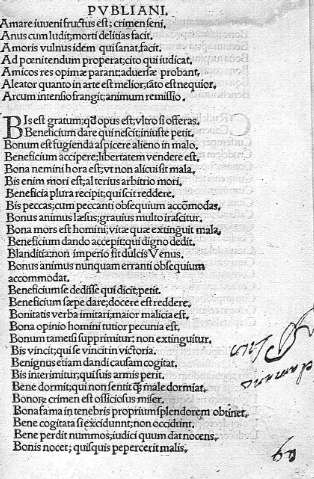 PVBLIANI.
Amare iuueni fructus est: crimen seni.
Anus cum ludit: morti delitias facit.
Amoris vulnus idem qui sanat, facit.
Ad pœnitendum properat: cito qui iudicat.
Amicos res opimæ parant: aduersæ probant.
Aleator quanto in arte est melior, tāto est nequior.
Arcum intensio frangit: animum remissio.
BIs est gratum: qd opus est: vltro si offeras.
Beneficium dare qui nescit: iniuste petit.
Bonum est fugienda aspicere alieno in malo.
Beneficium accipere: libertatem vendere est.
Bona nemini hora est: vt non alicui sit mala.
Bis enim mori est: alterius arbitrio mori.
Beneficia plura recipit: qui scit reddere.
Bis peccas: cum peccanti obsequium accōmodas.
Bonus animus læsus: grauius multo irascitur.
Bona mors est homini: vitæ quæ extinguit mala.
Beneficium dando accepit: qui digno dedit.
Blanditia: non imperio fit dulcis Venus.
Bonus animus nunquam erranti obsequium
accommodat.
Beneficium se dedisse qui dicit: petit.
Beneficium sæpe dare: docere est reddere.
Bonitatis verba imitari: maior malicia est.
Bona opinio homini tutior pecunia est.
Bonum tametsi supprimitur: non extinguitur.
Bis vincit: qui se vincit in victoria.
Benignus etiam dandi causam cogitat.
Bis interimitur: qui suis armis perit.
Bene dormit: qui non sentit q̄ male dormiat.
Bonorū crimen est officiosus miser.
Bona fama in tenebris proprium splendorem obtinet.
Bene cogitata si excidunnt: non occidunt.
Bene perdit nummos: iudici quum dat nocens.
Bonis nocet: quisquis pepercerit malis.